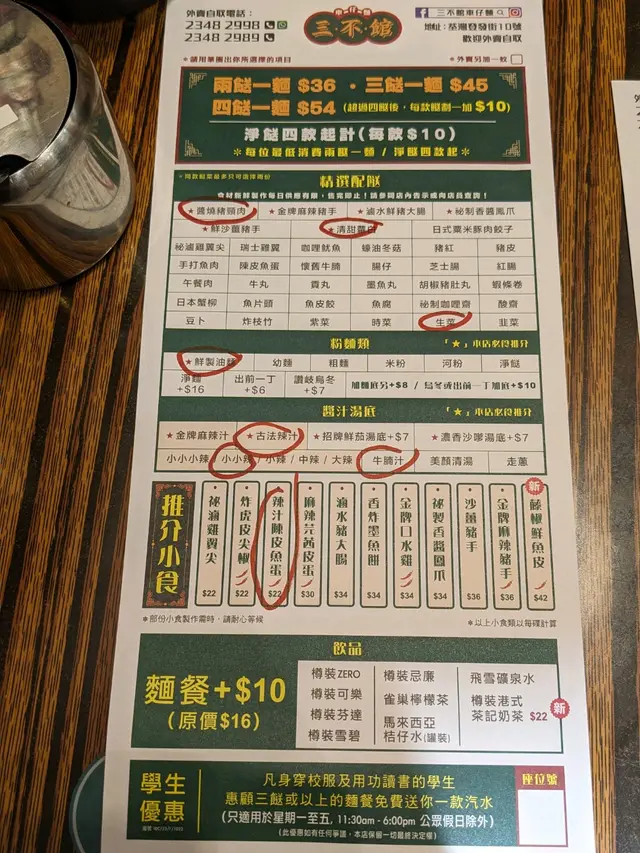 外賣自取電話：
2348 2998
2348 2989
三不館
三不館車仔麵
地址：荃灣登發街10號
歡迎外賣自取
*請用筆圈出你所選擇的項目
*外賣另加一蚊
兩餸一麵 $36・三餸一麵 $45
四餸一麵 $54
淨餸四款起計(每款$10)
*每位最低消費兩餸一麵 / 淨餸四款起*
精選配餸
食材新鮮製作每日供應有限，售完即止！請參閱店內告示或向店員查詢！
★醬燒豬頸肉 ★金牌麻辣豬手 ★滷水鮮豬大腸 ★秘制香醬鳳爪
★鮮沙薑豬手 ★清甜蘿蔔 日式粟米豚肉餃子
秘滷雞翼尖 瑞士雞翼 咖哩魷魚 蠔油冬菇 豬紅 豬皮
手打魚肉 陳皮魚蛋 懷舊牛腩 腸仔 芝士腸 紅腸
午餐肉 牛丸 貢丸 墨魚丸 胡椒豬肚丸 蝦條卷
日本蟹柳 魚片頭 魚皮餃 魚腐 秘制咖哩齋 酸齋
豆卜 炸枝竹 紫菜 時菜 生菜 韭菜
粉麵類 「★」本店必食推介
★鮮製油麵 幼麵 粗麵 米粉 河粉 淨餸
淨麵 +$16 出前一丁 +$6 讚岐烏冬 +$7 加麵底另+$8 / 烏冬或出前一丁加底+$10
醬汁湯底 「★」本店必食推介
★金牌麻辣汁 ★古法辣汁 ★招牌鮮茄湯底+$7 ★濃香沙嗲湯底+$7
小小小辣 / 小小辣 / 小辣 / 中辣 / 大辣 牛腩汁 美顏清湯 走蔥
推介小食
秘滷雞翼尖 $22
炸虎皮尖椒 $22
辣汁陳皮魚蛋 $22
麻辣芫茜皮蛋 $30
滷水豬大腸 $34
香炸墨魚餅 $34
金牌口水雞 $34
秘製香醬鳳爪 $34
沙薑豬手 $36
金牌麻辣豬手 $36
新
藤椒鮮魚皮 $42
*部份小食製作需時，請耐心等候
*以上小食類以每碟計算
飲品
麵餐+$10
(原價$16)
樽裝ZERO 樽裝忌廉 飛雪礦泉水
樽裝可樂 雀巢檸檬茶 樽裝港式
樽裝芬達 馬來西亞 茶記奶茶 $22 新
樽裝雪碧 桔仔水(罐裝)
學生
優惠
凡身穿校服及用功讀書的學生
惠顧三餸或以上的麵餐免費送你一款汽水
(只適用於星期一至五, 11:30am - 6:00pm 公眾假日除外)
(此優惠如有任何爭議，本店保留一切最終決定權)
座位號